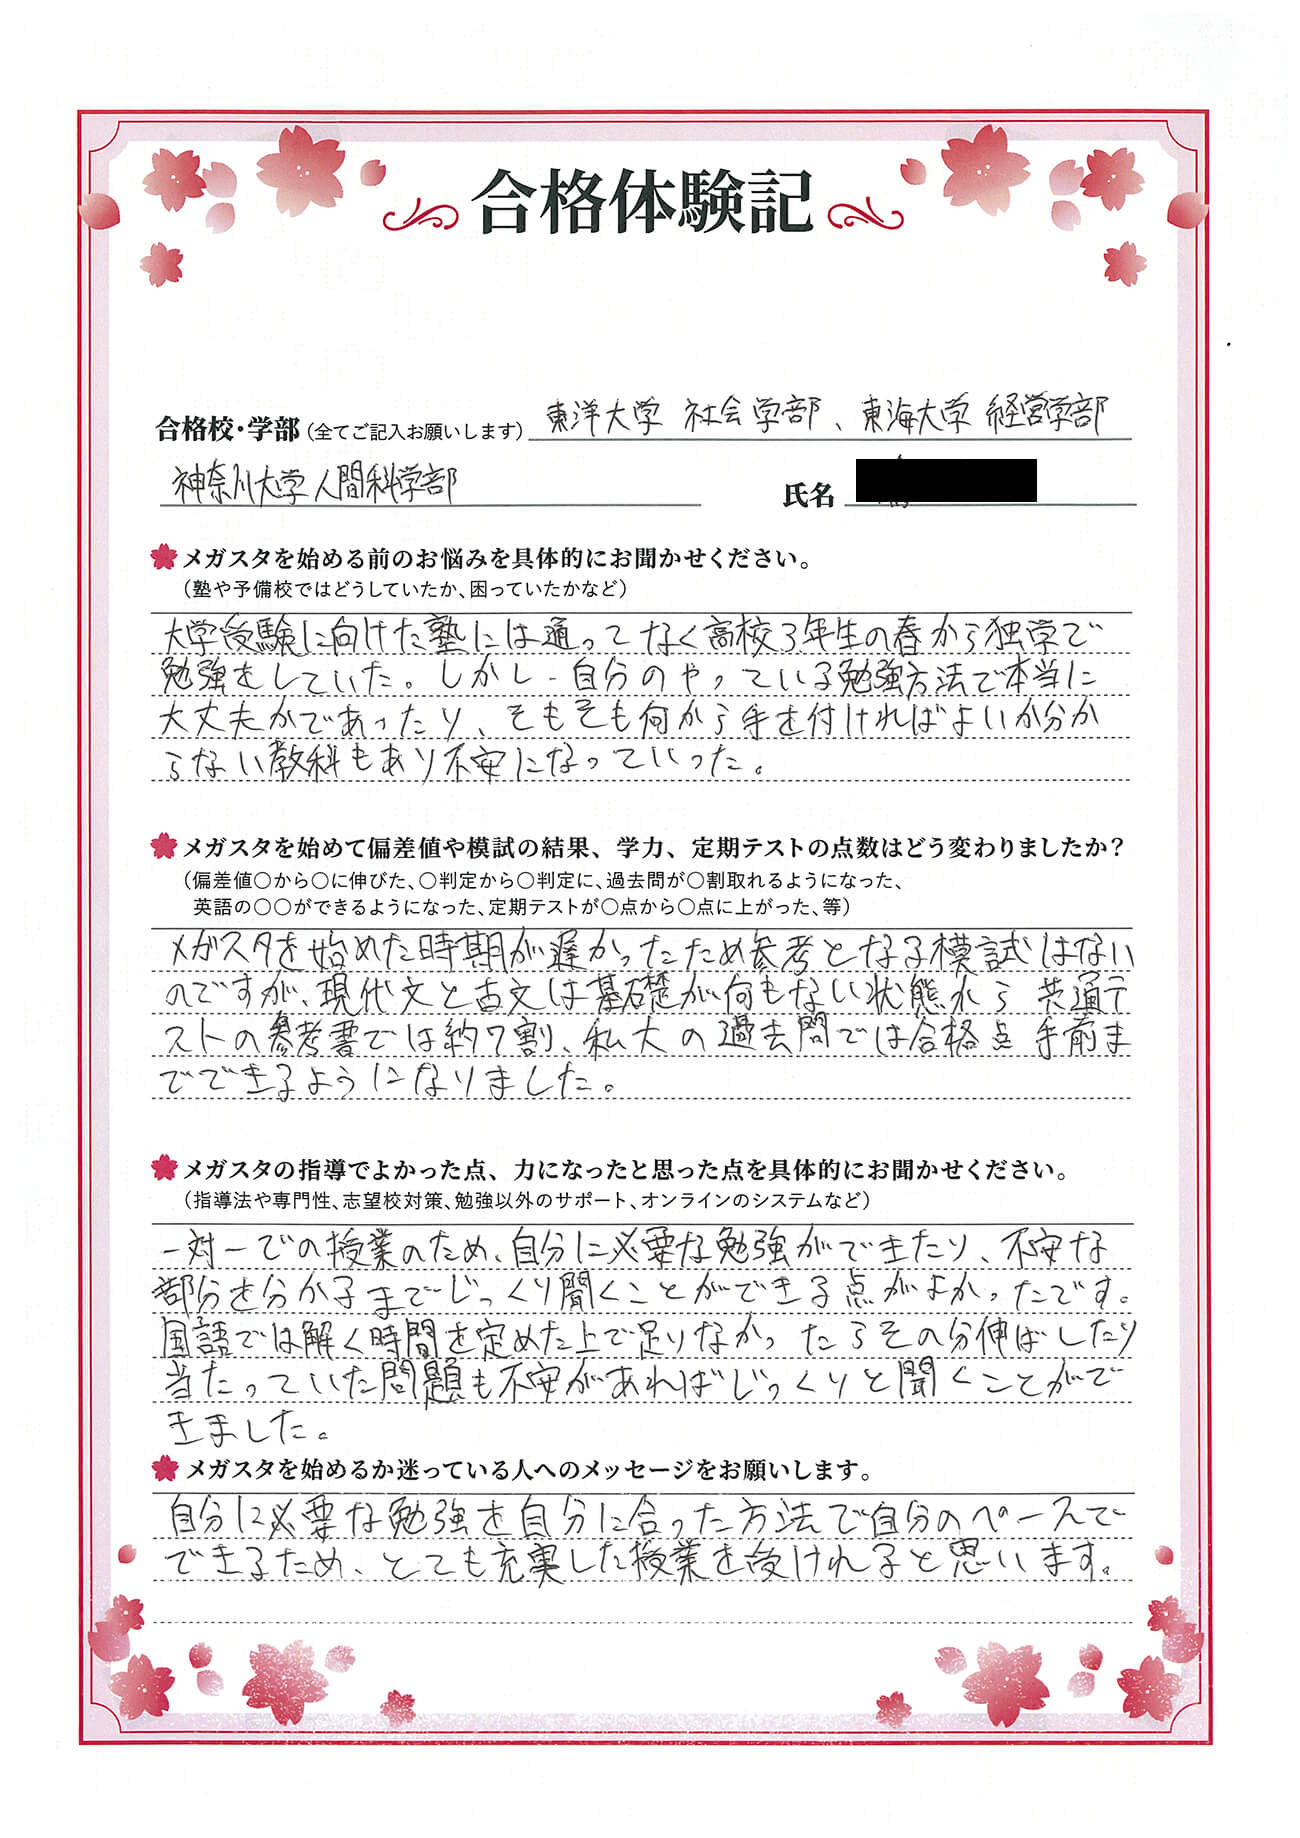 合格体験記
合格校・学部(全てご記入お願いします) 東洋大学 社会学部、東海大学 経営学部
神奈川大学人間科学部 氏名
メガスタを始める前のお悩みを具体的にお聞かせください。
(塾や予備校ではどうしていたか、困っていたかなど)
大学受験に向けた塾には通ってなく高校3年生の春から独学で
勉強をしていた。しかし、自分のやっている勉強方法で本当に
大丈夫かであったり、そもそも何から手を付ければよいか分か
らない教科もあり不安になっていった。
メガスタを始めて偏差値や模試の結果、学力、定期テストの点数はどう変わりましたか?
(偏差値〇から〇に伸びた、〇判定から〇判定に、過去問が〇割取れるようになった、
英語の〇〇ができるようになった、定期テストが〇点から〇点に上がった、等)
メガスタを始めた時期が遅かったため参考となる模試はない
のですが、現代文と古文は基礎が何もない状態から共通テ
ストの参考書では約7割、私大の過去問では合格点手前ま
でできるようになりました。
メガスタの指導でよかった点、力になったと思った点を具体的にお聞かせください。
(指導法や専門性、志望校対策、勉強以外のサポート、オンラインのシステムなど)
一対一での授業のため、自分に必要な勉強ができたり、不安な
部分を分かるまでじっくり聞くことができる点がよかったです。
国語では解く時間を定めた上で足りなかったらその分伸ばしたり
当たっていた問題も不安があればじっくりと聞くことがで
きました。
メガスタを始めるか迷っている人へのメッセージをお願いします。
自分に必要な勉強を自分に合った方法で自分のペースで
できるため、とても充実した授業を受けれると思います。